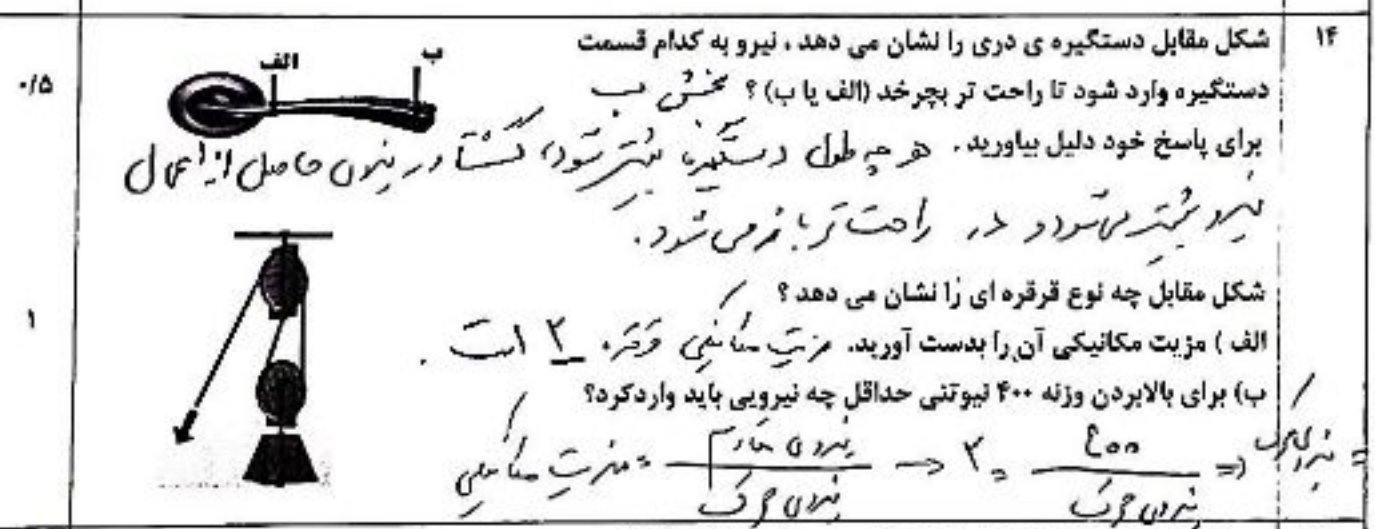 ۱۴
شکل مقابل دستگیره ی دری را نشان می دهد ، نیرو به کدام قسمت
دستگیره وارد شود تا راحت تر بچرخد (الف یا ب) ؟ بخش ب
الف
ب
۰/۵
برای پاسخ خود دلیل بیاورید. هر چه طول دستگیره بیشتر شود، گشتاور نیروی حاصل از اعمال
نیرو بیشتر می‌شود و در راحت تر باز می شود.
شکل مقابل چه نوع قرقره ای را نشان می دهد ؟
۱
الف ) مزیت مکانیکی آن را بدست آورید. مزیت مکانیکی قرقره ۳ است .
ب) برای بالابردن وزنه ۴۰۰ نیوتنی حداقل چه نیرویی باید واردکرد؟
مزیت مکانیکی = نیروی مقاوم / نیروی محرک → ۳ = ۴۰۰ / نیروی محرک ⇒ نیروی محرک =